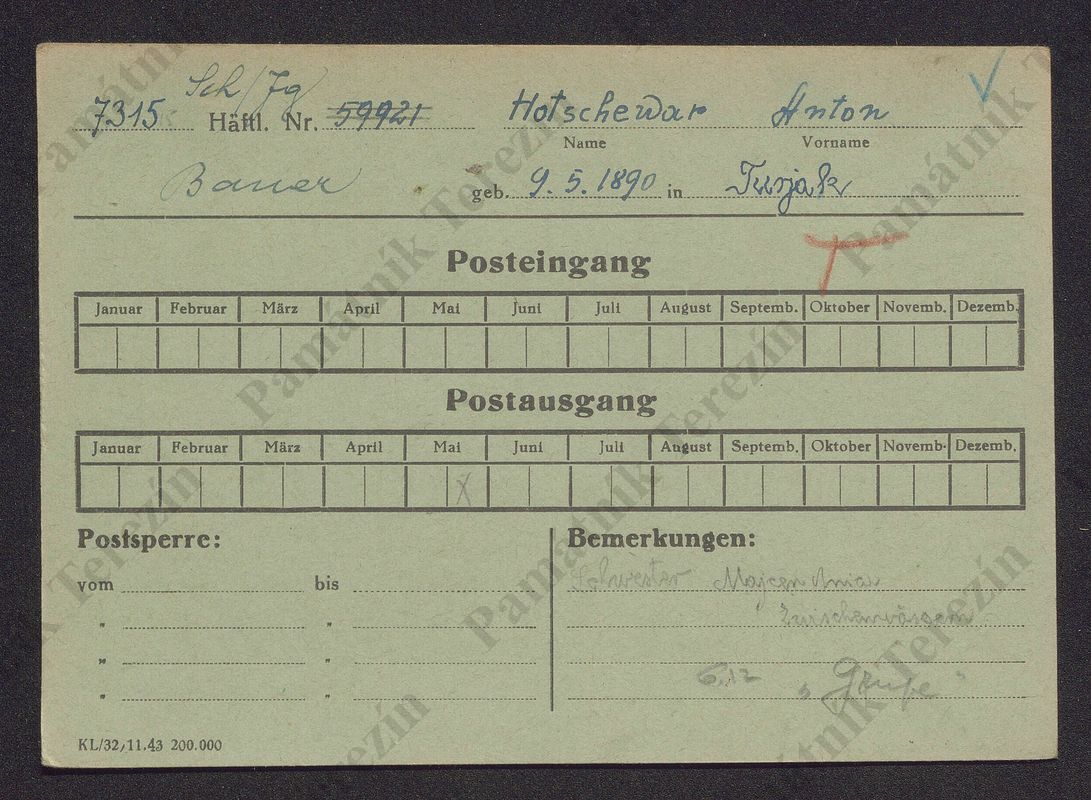 Sch/Jg
7315 Häftl. Nr. 59921 Hotschewar Anton
Name Vorname
Bauer geb. 9. 5. 1890 in Turjak
Posteingang
Januar Februar März April Mai Juni Juli August Septemb. Oktober Novemb. Dezemb.
Postausgang
Januar Februar März April Mai Juni Juli August Septemb. Oktober Novemb. Dezemb.
X
Postsperre: Bemerkungen:
vom bis Schwester Majcen Anna
" "
" " 6.12
" " "Grufe"
KL/32, 11.43 200.000
Památník Terezín